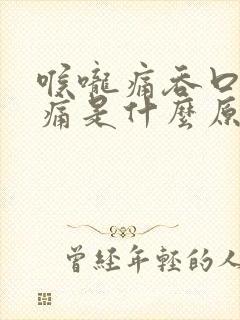 喉嚨痛吞口
痛是什麼原
曾經年輕的人